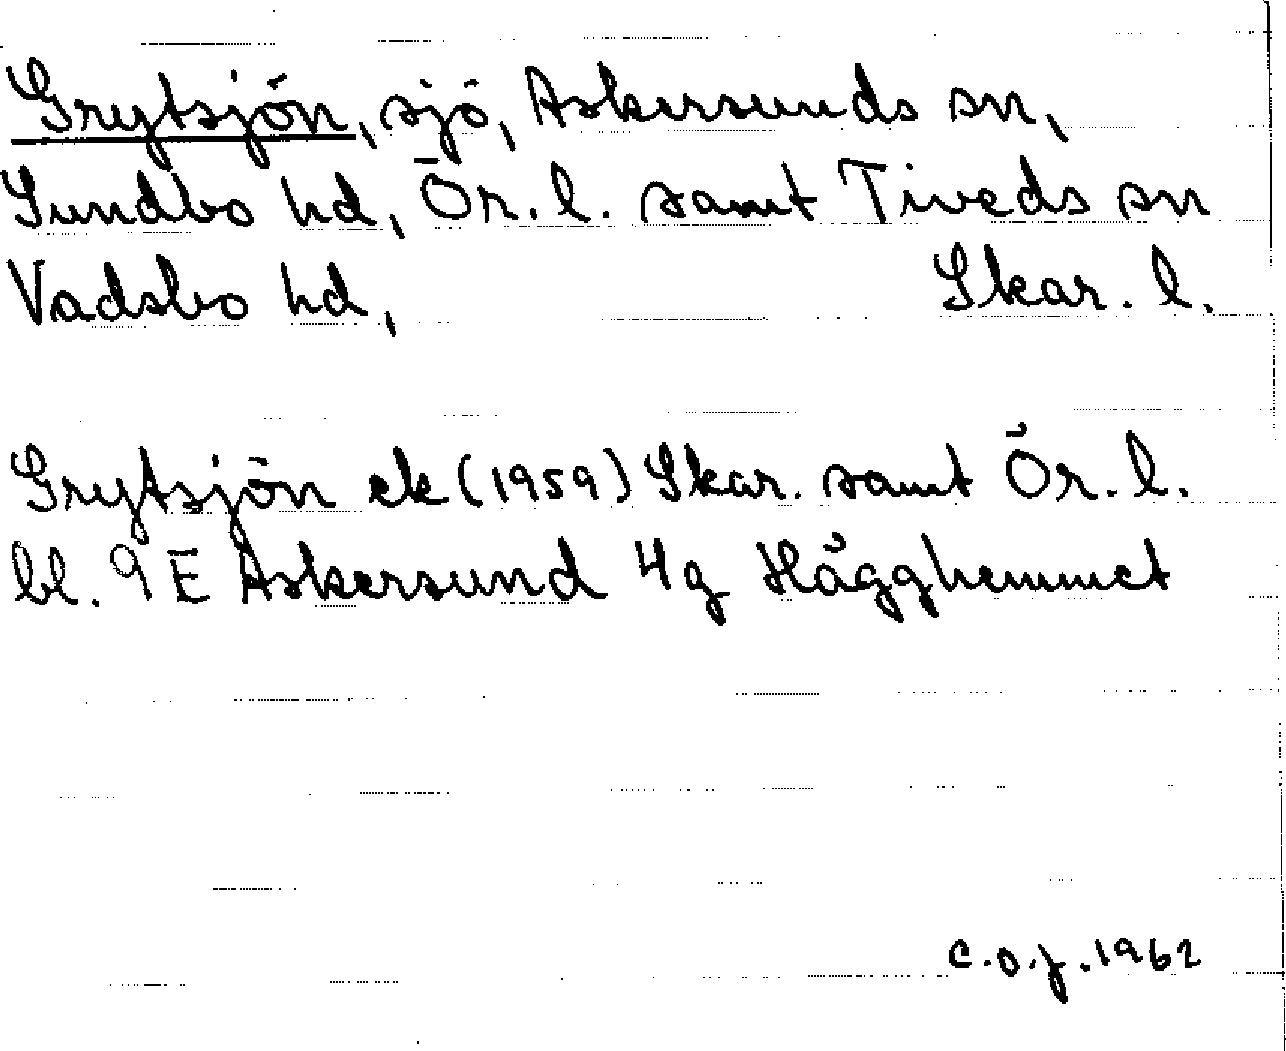 Grytsjön, sjö, Askersunds sn,
Sundbo hd, Ör. l. samt Tiveds sn
Vadsbo hd, Skar. l.
Grytsjön ek (1959) Skar. samt Ör. l.
bl. 9 E Askersund 4g Hägghemmet
C.O.J. 1962